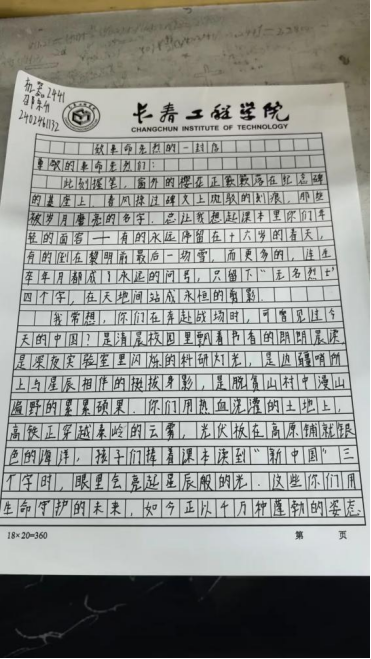 机器2441
2402461132
长春工程学院
CHANGCHUN INSTITUTE OF TECHNOLOGY
致革命先烈的一封信
尊敬的革命先烈们：
此刻提笔，窗外的樱花正簌簌落在纪念碑
的基座上，春风掠过碑文上斑驳的刻痕，那些
被岁月磨亮的名字，总让我想起课本里你们年
轻的面容——有的永远停留在十六岁的春天，
有的倒在黎明前最后一场雪，而更多的，连生
卒年月都成了永远的问号，只留下"无名烈士"
四个字，在天地间站成永恒的剪影。
我常想，你们在奔赴战场时，可曾见过今
天的中国？是清晨校园里飘着书香的朗朗晨读，
是深夜实验室里闪烁的科研灯光，是边疆哨所
上与星辰相伴的挺拔身影，是脱贫山村中漫山
遍野的累累硕果。你们用热血浇灌的土地上，
高铁正穿越秦岭的云雾，光伏板在高原铺就银
色的海洋，孩子们捧着课本读到"新中国"三
个字时，眼里会亮起星辰般的光。这些你们用
生命守护的未来，如今正以千万种蓬勃的姿态
18×20=360
第 页